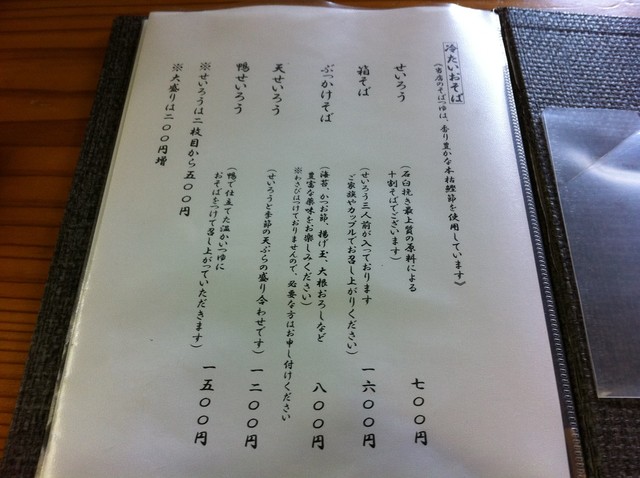 冷たいおそば
(当店のそばつゆは、香り豊かな本枯鰹節を使用しています)
せいろう
(石臼挽き最上質の原料による
十割そばでございます)
七〇〇円
箱そば
(せいろう二人前が入っております
ご家族やカップルでお召し上がりください)
一六〇〇円
ぶっかけそば
(海苔、かつお節、揚げ玉、大根おろしなど
豊富な薬味をお楽しみください)
※わさびはつけておりませんので、必要な方はお申し付けください
八〇〇円
天せいろう
(せいろうと季節の天ぷらの盛り合わせです)
一二〇〇円
鴨せいろう
(鴨で仕立てた温かいつゆに
おそばをつけて召し上がっていただきます)
一五〇〇円
※せいろうは二枚目から五〇〇円
※大盛りは二〇〇円増